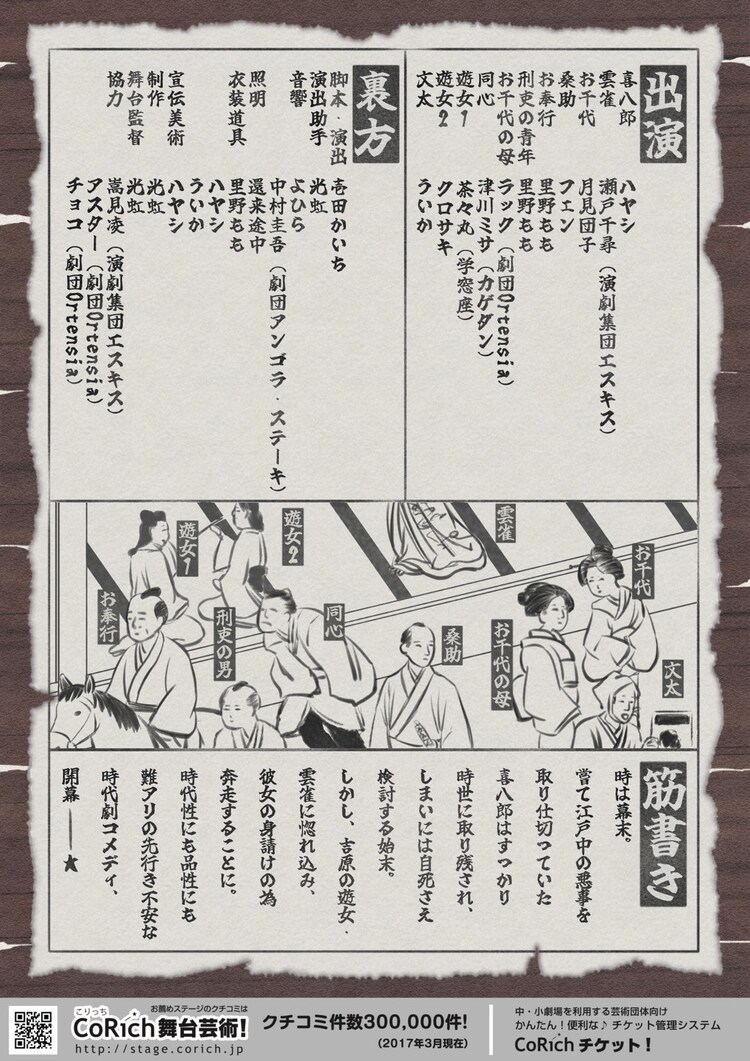 出演
喜八郎 ハヤシ
雲雀 瀬戸千尋（演劇集団エスキス）
お千代 月見団子
桑助 フェン
お奉行 里野もも
刑吏の青年 里野もも
お千代の母 ラック（劇団Ortensia）
同心 津川ミサ（カゲダン）
遊女1 茶々丸（学窓座）
遊女2 クロサキ
文太 ういか
裏方
脚本・演出 壱田かいち
演出助手 光虹
音響 よひら
中村圭吾（劇団アンゴラ・ステーキ）
照明 還来途中
衣装道具 里野もも
ハヤシ
ういか
宣伝美術 ハヤシ
制作 光虹
舞台監督 光虹
協力 嵩見凌（演劇集団エスキス）
アスター（劇団Ortensia）
チョコ（劇団Ortensia）
雲雀
お千代
文太
お千代の母
桑助
同心
遊女2
刑吏の男
遊女1
お奉行
筋書き
時は幕末。
嘗て江戸中の悪事を
取り仕切っていた
喜八郎はすっかり
時世に取り残され、
しまいには自死さえ
検討する始末。
しかし、吉原の遊女・
雲雀に惚れ込み、
彼女の身請けの為
奔走することに。
時代性にも品性にも
難アリの先行き不安な
時代劇コメディ、
開幕――★
お薦めステージのクチコミは
こりっち
CoRich舞台芸術!
http://stage.corich.jp
クチコミ件数300,000件!
（2017年3月現在）
中・小劇場を利用する芸術団体向け
かんたん！便利な♪チケット管理システム
CoRichチケット！